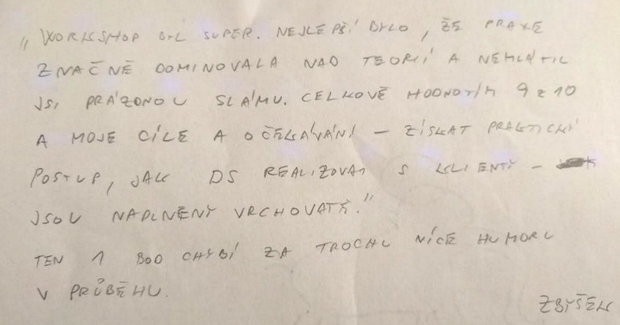 „WORKSHOP BYL SUPER. NEJLEPŠÍ BYLO, ŽE PRAXE
ZNAČNĚ DOMINOVALA NAD TEORIÍ A NEMLÁTIL
JSI PRÁZDNOU SLÁMU. CELKOVĚ HODNOTÍM 9 Z 10
A MOJE CÍLE A OČEKÁVÁNÍ – ZÍSKAT PRAKTICKÝ
POSTUP, JAK DS REALIZOVAT S KLIENTY –
JSOU NAPLNĚNY VRCHOVATĚ."
TEN 1 BOD CHYBÍ ZA TROCHU VÍCE HUMORU
V PRŮBĚHU.
ZBYŠEK